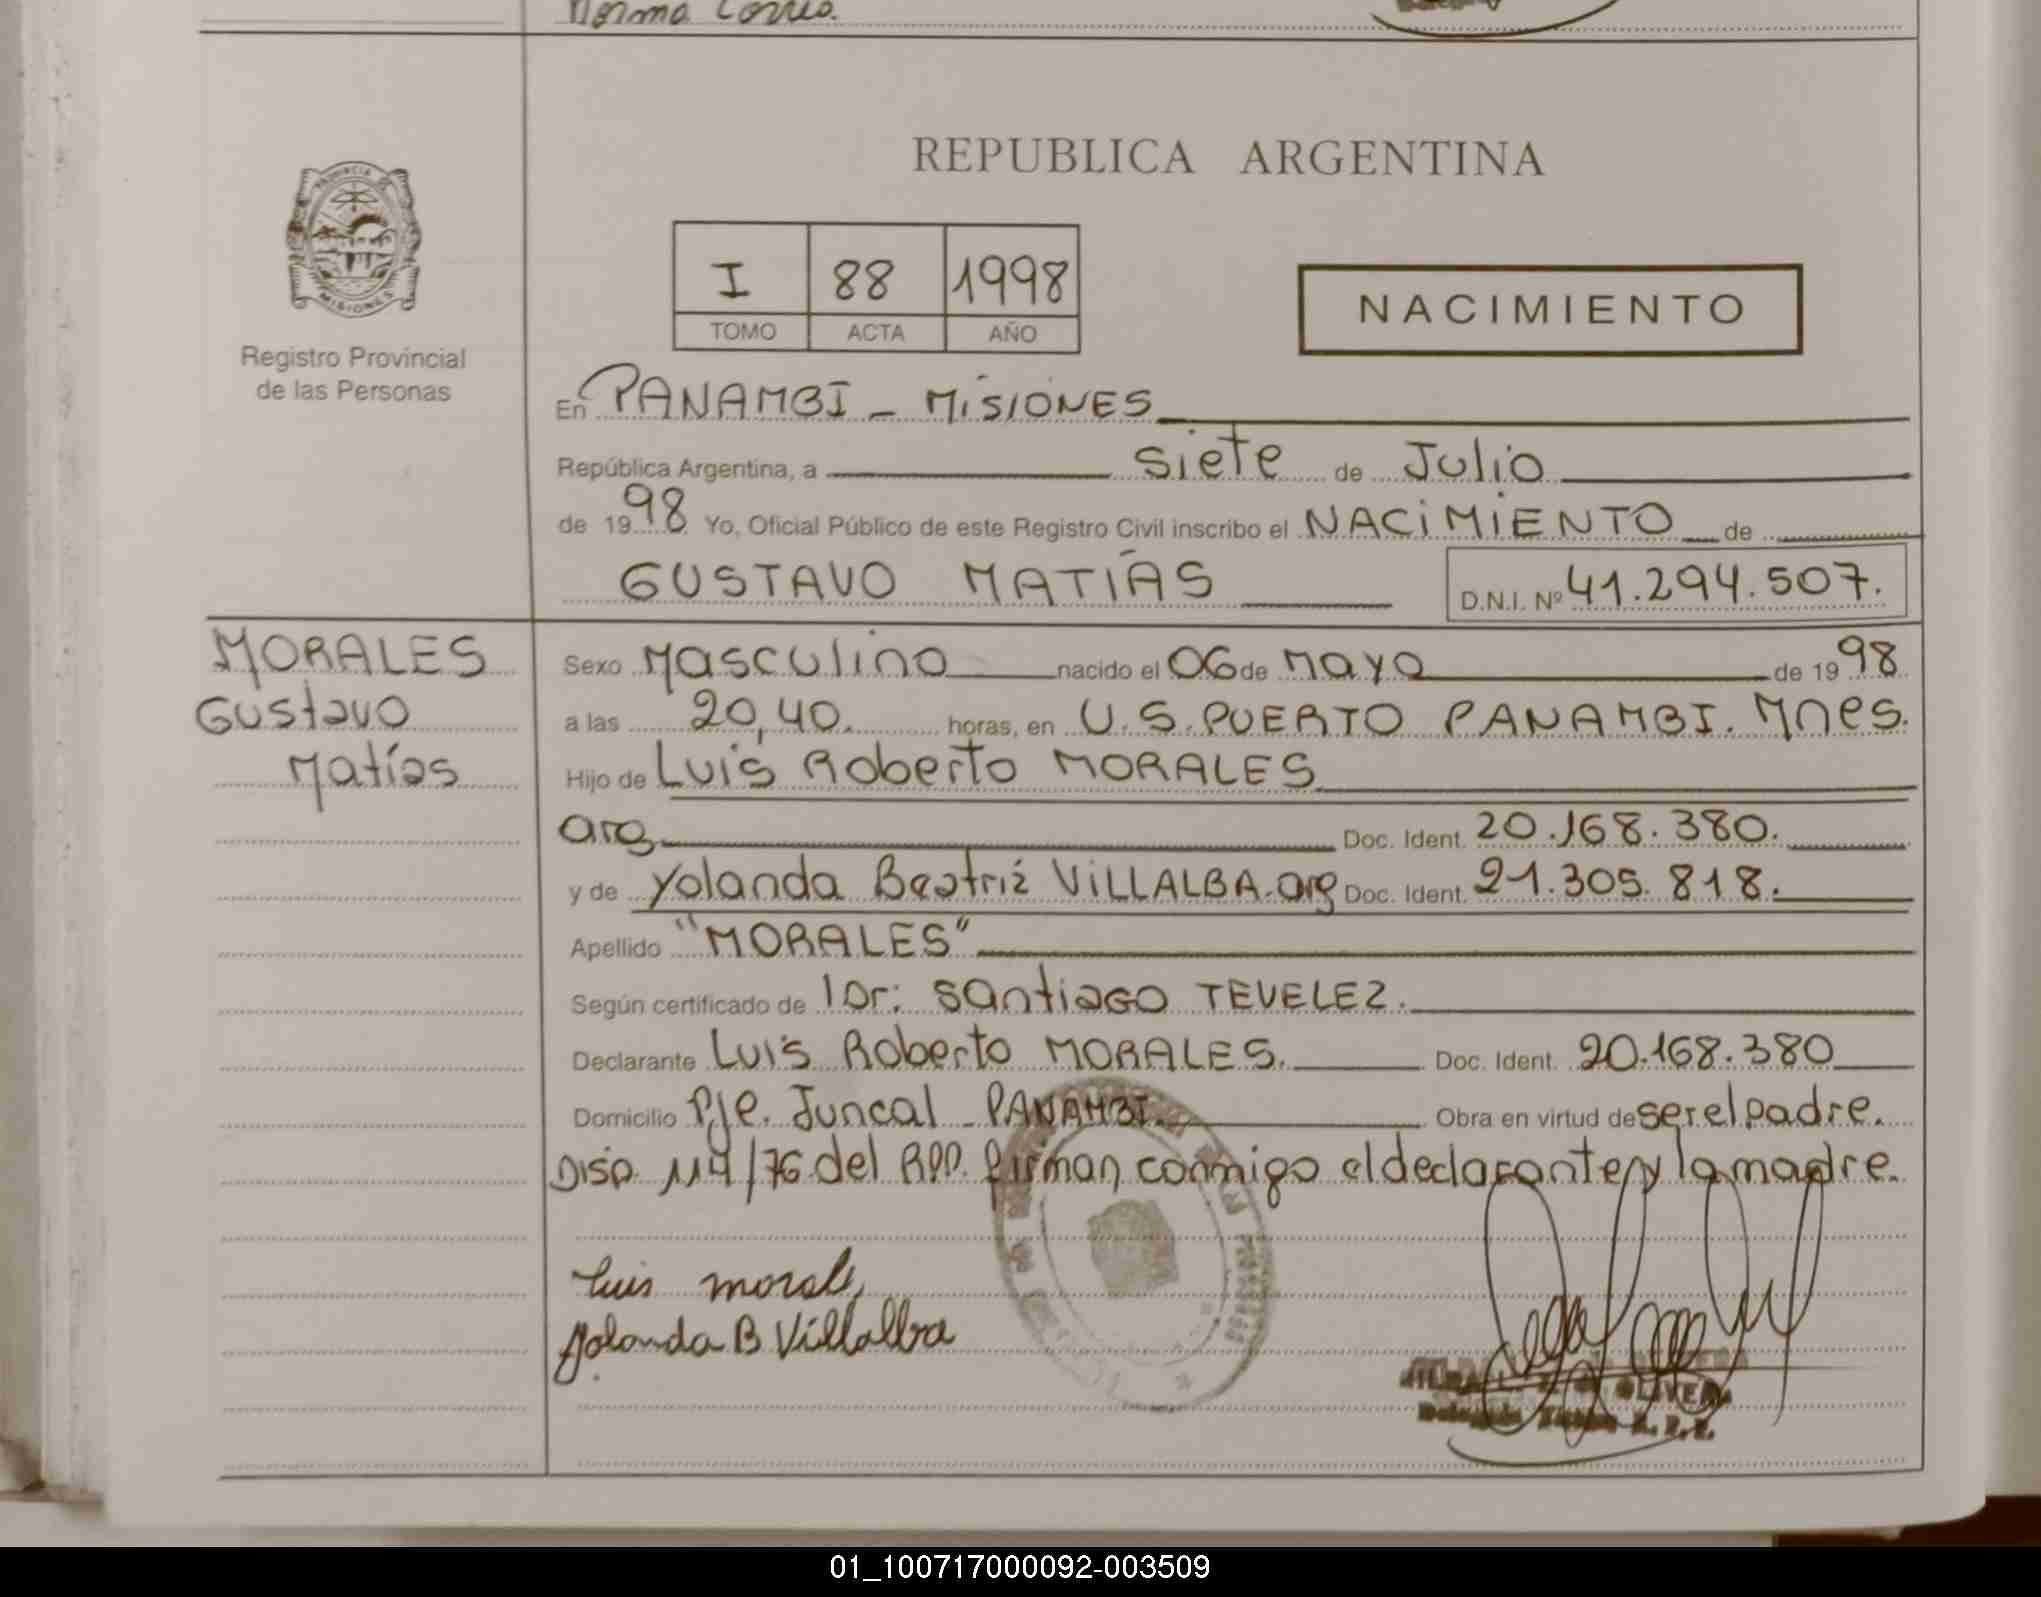 Norma
REPUBLICA ARGENTINA
PROVINCIA DE
MISIONES
I 88 1998
TOMO ACTA AÑO
NACIMIENTO
Registro Provincial
de las Personas
En PANAMBI - MISIONES
República Argentina, a siete de Julio
de 1998 Yo, Oficial Público de este Registro Civil inscribo el NACIMIENTO de
GUSTAVO MATÍAS D.N.I. Nº 41.294.507.
MORALES
Gustavo
Matías
Sexo Masculino nacido el 06 de Mayo de 1998
a las 20,40. horas, en U.S. PUERTO PANAMBI. Mnes.
Hijo de Luis Roberto MORALES
arg Doc. Ident. 20.168.380.
y de Yolanda Beatriz VILLALBA. arg Doc. Ident. 21.305.818.
Apellido "MORALES"
Según certificado de Dr: Santiago TEVELEZ.
Declarante Luis Roberto MORALES. Doc. Ident. 20.168.380
Domicilio Pje. Juncal - PANAMBI. Obra en virtud de ser el padre.
Disp. 114/76 del RPP. firman conmigo el declarante y la madre.
Luis Morales
Yolanda B Villalba
OLIVERA
01_100717000092-003509